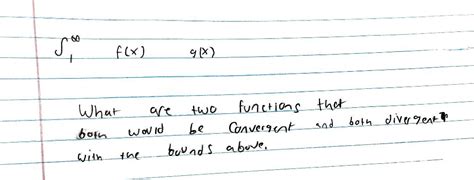 ∫₁^∞ f(x) g(x)
What are two functions that
both would be convergent and both divergent
with the bounds above.